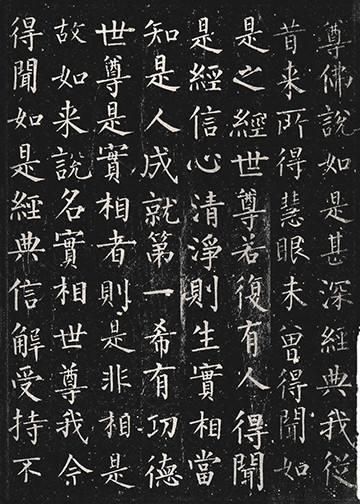 尊佛說如是甚深經典我從
昔来所得慧眼未曾得聞如
是之經世尊若復有人得聞
是經信心清淨則生實相當
知是人成就第一希有功德
世尊是實相者則是非相是
故如来說名實相世尊我今
得聞如是經典信解受持不